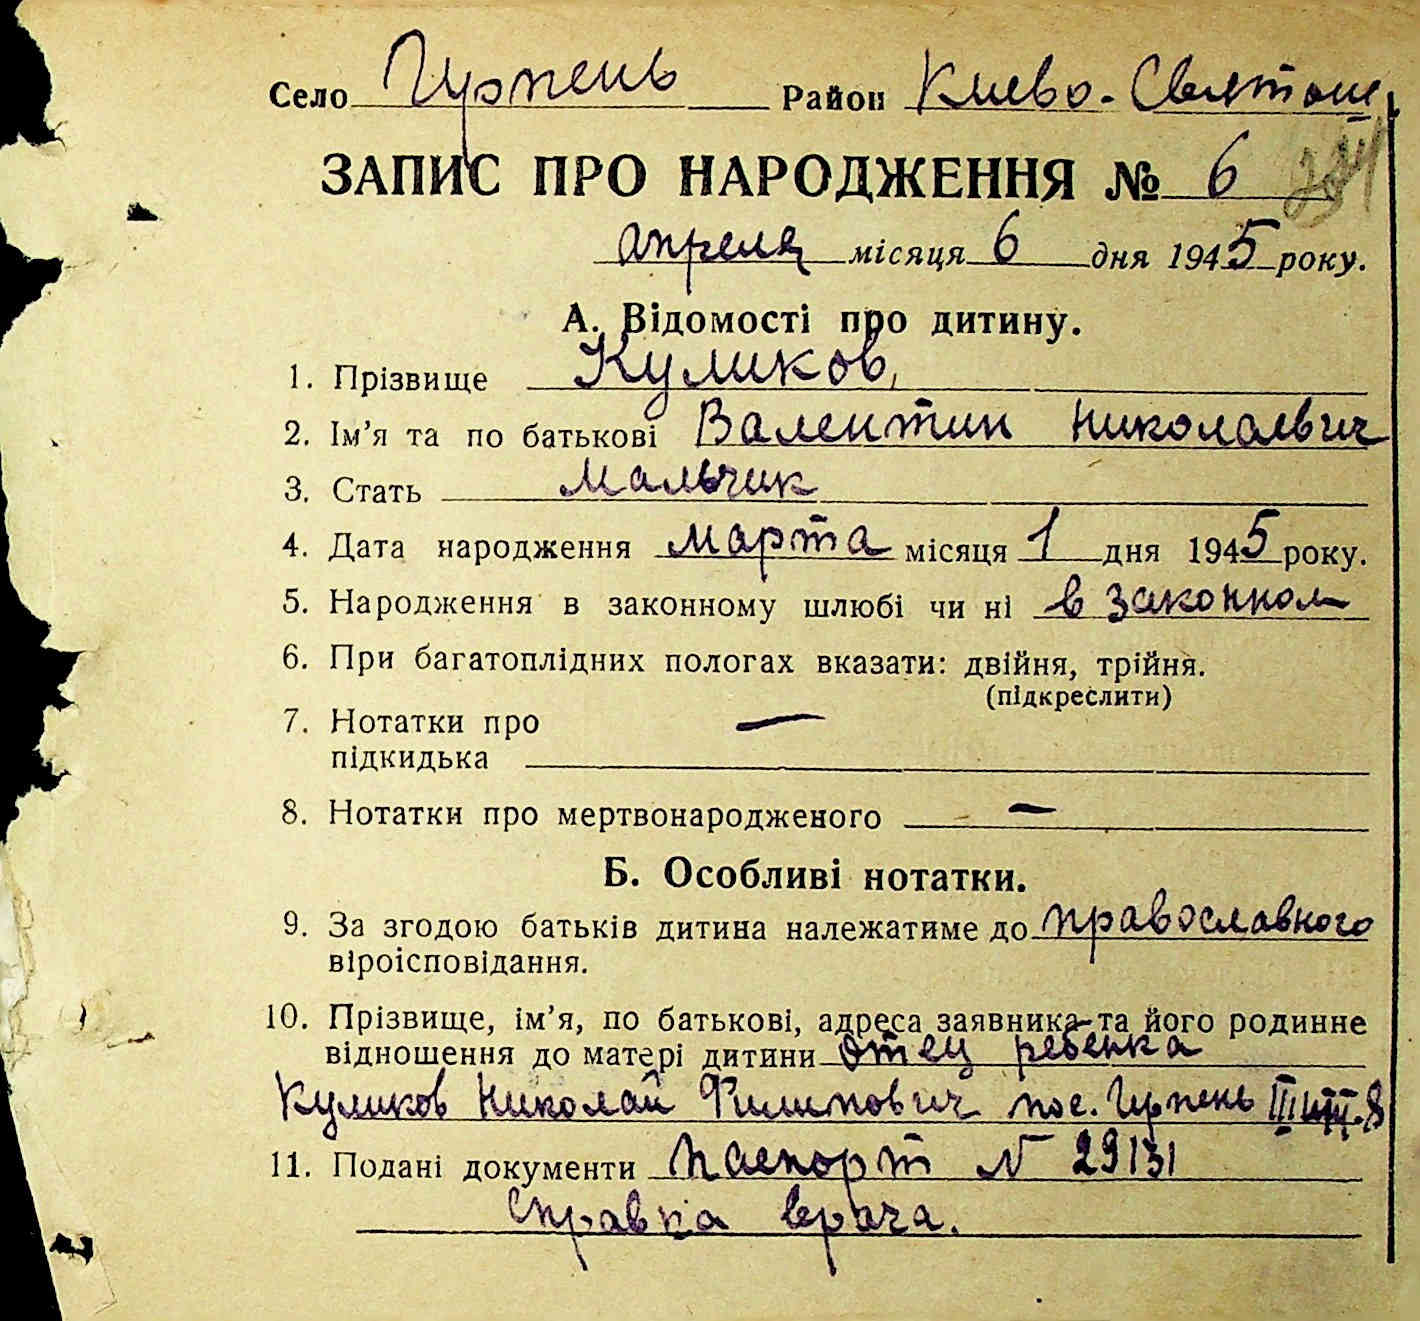 Село Ирпень Район Киево-Святош.
ЗАПИС ПРО НАРОДЖЕННЯ № 6
апреля місяця 6 дня 1945 року.
А. Відомості про дитину.
1. Прізвище Куликов
2. Ім'я та по батькові Валентин Николаевич
3. Стать Мальчик
4. Дата народження марта місяця 1 дня 1945 року.
5. Народження в законному шлюбі чи ні в законном
6. При багатоплідних пологах вказати: двійня, трійня.
(підкреслити)
7. Нотатки про —
підкидька
8. Нотатки про мертвонародженого —
Б. Особливі нотатки.
9. За згодою батьків дитина належатиме до православного
віроісповідання.
10. Прізвище, ім'я, по батькові, адреса заявника та його родинне
відношення до матері дитини отец ребенка
Куликов Николай Филипович пос. Ирпень III
11. Подані документи паспорт N 29131
Справка врача.